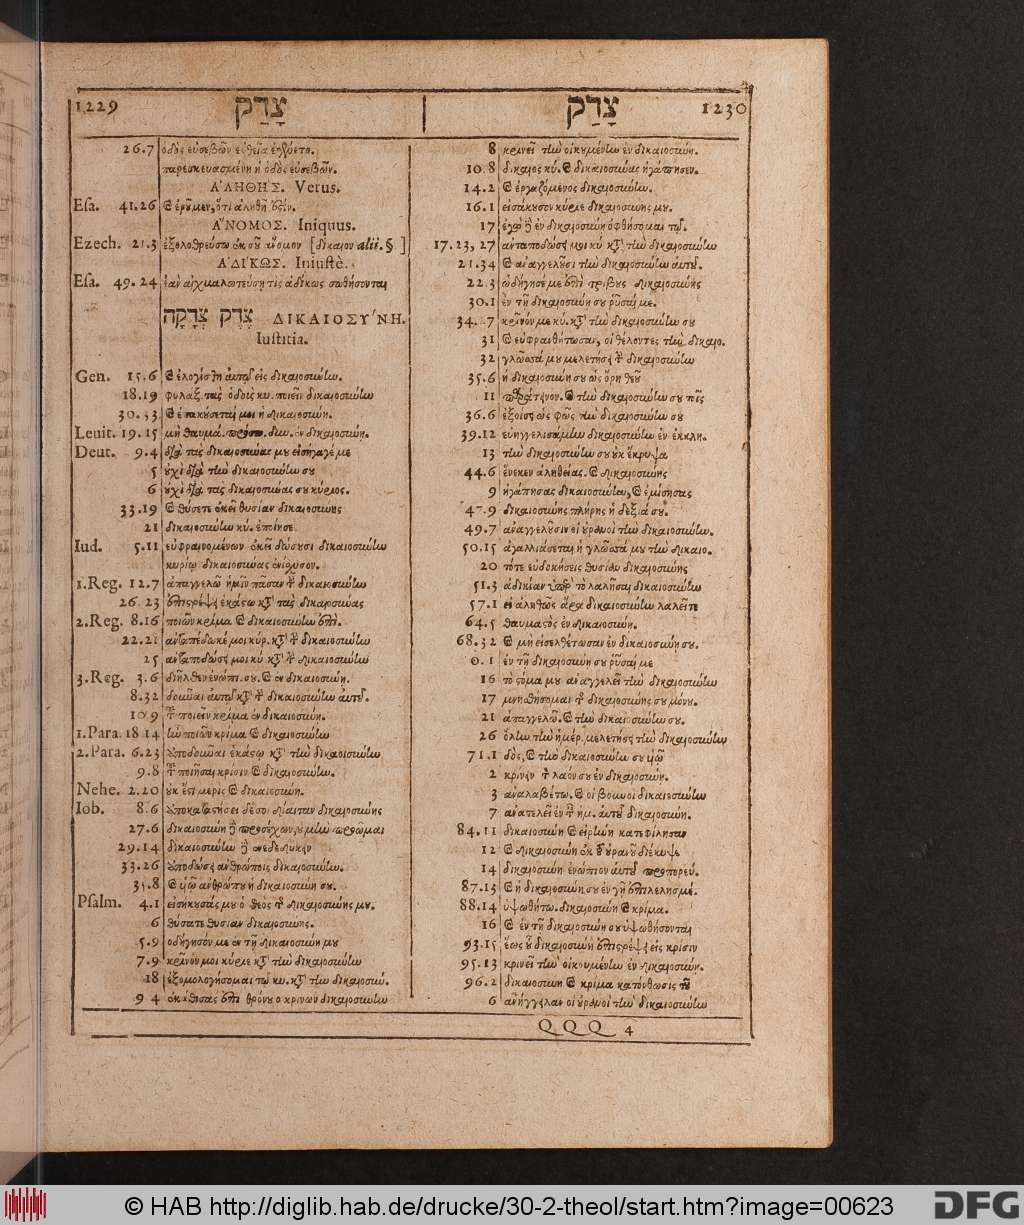 1229 צָדַק
26.7 ὁδὸς εὐσεβῶν εὐθεῖα
παρεσκευασμένη ἡ ὁδὸς εὐσεβῶν.
ἈΛΗΘΗΣ. Verus.
Esa. 41.26 ἐροῦμεν, ὅτι ἀληθῆ ἐστίν.
ἌΝΟΜΟΣ. Iniquus.
Ezech. 21.3 ἐξολοθρεύσω ἐκ σοῦ ἄνομον [δίκαιον alii. § ]
ἈΔΙΚΩΣ. Iniustè.
Esa. 49.24 ἐὰν αἰχμαλωτεύσῃ τὶς ἀδίκως σωθήσονται
צֶדֶק צְדָקָה ΔΙΚΑΙΟΣΥΝΗ.
Iustitia.
Gen. 15.6 καὶ ἐλογίσθη αὐτῷ εἰς δικαιοσύνην.
18.19 φυλάξ. τὰς ὁδοὺς κυ. ποιεῖν δικαιοσύνην
30.33 καὶ ἐπακούσεταί μοι ἡ δικαιοσύνη.
Leuit. 19.15 μὴ θαυμά. ἐν δικαιοσύνῃ.
Deut. 9.4 διὰ τὰς δικαιοσύνας μου εἰσήγαγέ με
5 οὐχὶ διὰ τὴν δικαιοσύνην σου
6 οὐχὶ διὰ τὰς δικαιοσύνας σου κύριος.
33.19 καὶ θύσετε ἐκεῖ θυσίαν δικαιοσύνης
21 δικαιοσύνην κύ. ἐποίησε
Iud. 5.11 εὐφραινομένων ἐκεῖ δώσουσι δικαιοσύνην
κυρίῳ δικαιοσύνας ἐνίσχυσον.
1.Reg. 12.7 ἀπαγγελῶ ὑμῖν πᾶσαν τὴν δικαιοσύνην
26.23 ἐπιστρέψει ἑκάστῳ κατὰ τὰς δικαιοσύνας
2.Reg. 8.16 ποιῶν κρίμα καὶ δικαιοσύνην ἐπὶ.
22.21 ἀνταπέδωκέ μοι κύρ. κατὰ τὴν δικαιοσύνην
25 ἀνταποδώσει μοι κύ κατὰ τὴν δικαιοσύνην
3.Reg. 3.6 διῆλθεν ἐνώπι. σου. καὶ ἐν δικαιοσύνῃ.
8.32 δοῦναι αὐτῷ κατὰ τὴν δικαιοσύνην αὐτοῦ.
10.9 τοῦ ποιεῖν κρίμα ἐν δικαιοσύνῃ.
1.Para. 18.14 ἦν ποιῶν κρίμα καὶ δικαιοσύνην
2.Para. 6.23 ἀποδοῦναι ἑκάστῳ κατὰ τὴν δικαιοσύνην
9.8 τοῦ ποιῆσαι κρίσιν καὶ δικαιοσύνην.
Nehe. 2.20 οὐκ ἔστι μερὶς καὶ δικαιοσύνη.
Iob. 8.6 ἀποκαταστήσει δέ σοι δίαιταν δικαιοσύνης
27.6 δικαιοσύνῃ δὲ προσέχων, οὐ μὴν προῶμαι
29.14 δικαιοσύνην δὲ ἐνεδεδύκειν
33.26 ἀποδώσει ἀνθρώποις δικαιοσύνην.
35.8 καὶ υἱῷ ἀνθρώπου ἡ δικαιοσύνη σου.
Psalm. 4.1 εἰσήκουσάς μου ὁ θεὸς τῆς δικαιοσύνης μου.
6 θύσατε θυσίαν δικαιοσύνης.
5.9 ὁδήγησόν με ἐν τῇ δικαιοσύνῃ μου
7.9 κρῖνόν μοι κύριε κατὰ τὴν δικαιοσύνην
18 ἐξομολογήσομαι τῷ κυ. κατὰ τὴν δικαιοσύ.
9 4 ἐκάθισας ἐπὶ θρόνου ὁ κρίνων δικαιοσύνην
צָדַק 1230
8 κρινεῖ τὴν οἰκουμένην ἐν δικαιοσύνῃ.
10.8 δίκαιος κύ. καὶ δικαιοσύνας ἠγάπησεν.
14.2 καὶ ἐργαζόμενος δικαιοσύνην.
16.1 εἰσάκουσον κύριε δικαιοσύνης μου.
17 ἐγὼ δὲ ἐν δικαιοσύνῃ ὀφθήσομαι τῷ.
17.23, 27 ἀνταποδώσει μοι κύ κατὰ τὴν δικαιοσύνην
21.34 καὶ ἀναγγελοῦσι τὴν δικαιοσύνην αὐτοῦ.
22.3 ὡδήγησέ με ἐπὶ τρίβους δικαιοσύνης
30.1 ἐν τῇ δικαιοσύνῃ σου ῥῦσαί με.
34.27 κρῖνόν με κύ. κατὰ τὴν δικαιοσύνην σου
31 καὶ εὐφρανθήτωσαν, οἱ θέλοντες τὴν δικαιο.
32 γλῶσσά μου μελετήσει τὴν δικαιοσύνην
35.6 ἡ δικαιοσύνη σου ὡς ὄρη θεοῦ
11 παράτεινον. καὶ τὴν δικαιοσύνην σου τοῖς
36.6 ἐξοίσει ὡς φῶς τὴν δικαιοσύνην σου
39.12 εὐηγγελισάμην δικαιοσύνην ἐν ἐκκλη.
13 τὴν δικαιοσύνην σου οὐκ ἔκρυψα
44.6 ἕνεκεν ἀληθείας. καὶ δικαιοσύνης
9 ἠγάπησας δικαιοσύνην, καὶ ἐμίσησας
47.9 δικαιοσύνης πλήρης ἡ δεξιά σου.
49.7 ἀναγγελοῦσιν οἱ οὐρανοὶ τὴν δικαιοσύνην.
50.15 ἀγαλλιάσεται ἡ γλῶσσά μου τὴν δικαιο.
20 τότε εὐδοκήσεις θυσίαν δικαιοσύνης
51.3 ἀδικίαν ὑπὲρ τὸ λαλῆσαι δικαιοσύνην
57.1 εἰ ἀληθῶς ἄρα δικαιοσύνην λαλεῖτε
64.5 θαυμαστὸς ἐν δικαιοσύνῃ.
68.32 καὶ μὴ εἰσελθέτωσαν ἐν δικαιοσύνῃ σου.
0.1 ἐν τῇ δικαιοσύνῃ σου ῥῦσαί με
16 τὸ στόμα μου ἀναγγελεῖ τὴν δικαιοσύνην
17 μνησθήσομαι τῆς δικαιοσύνης σου μόνου.
21 ἀπαγγελῶ. καὶ τὴν δικαιοσύνην σου.
26 ὅλην τὴν ἡμέρ. μελετήσει τὴν δικαιοσύνην
71.1 δὸς, καὶ τὴν δικαιοσύνην σου υἱῷ
2 κρίνειν τὸν λαόν σου ἐν δικαιοσύνῃ.
3 ἀναλαβέτω. καὶ οἱ βουνοὶ δικαιοσύνην
7 ἀνατελεῖ ἐν ταῖς ἡμ. αὐτοῦ δικαιοσύνη.
84.11 δικαιοσύνη καὶ εἰρήνη κατεφίλησαν
12 καὶ δικαιοσύνη ἐκ τοῦ οὐρανοῦ διέκυψε
14 δικαιοσύνη ἐνώπιον αὐτοῦ προπορεύ.
87.13 καὶ ἡ δικαιοσύνη σου ἐν γῇ ἐπιλελησμέ.
88.14 ὑψωθήτω. δικαιοσύνη καὶ κρίμα.
16 καὶ ἐν τῇ δικαιοσύνῃ σου ὑψωθήσονται
93.15 ἕως οὗ δικαιοσύνη ἐπιστρέψει εἰς κρίσιν
95.13 κρινεῖ τὴν οἰκουμένην ἐν δικαιοσύνῃ.
96.2 δικαιοσύνη καὶ κρίμα κατόρθωσις τοῦ
6 ἀνήγγειλαν οἱ οὐρανοὶ τὴν δικαιοσύνην
QQQ 4
© HAB http://diglib.hab.de/drucke/30-2-theol/start.htm?image=00623
DFG